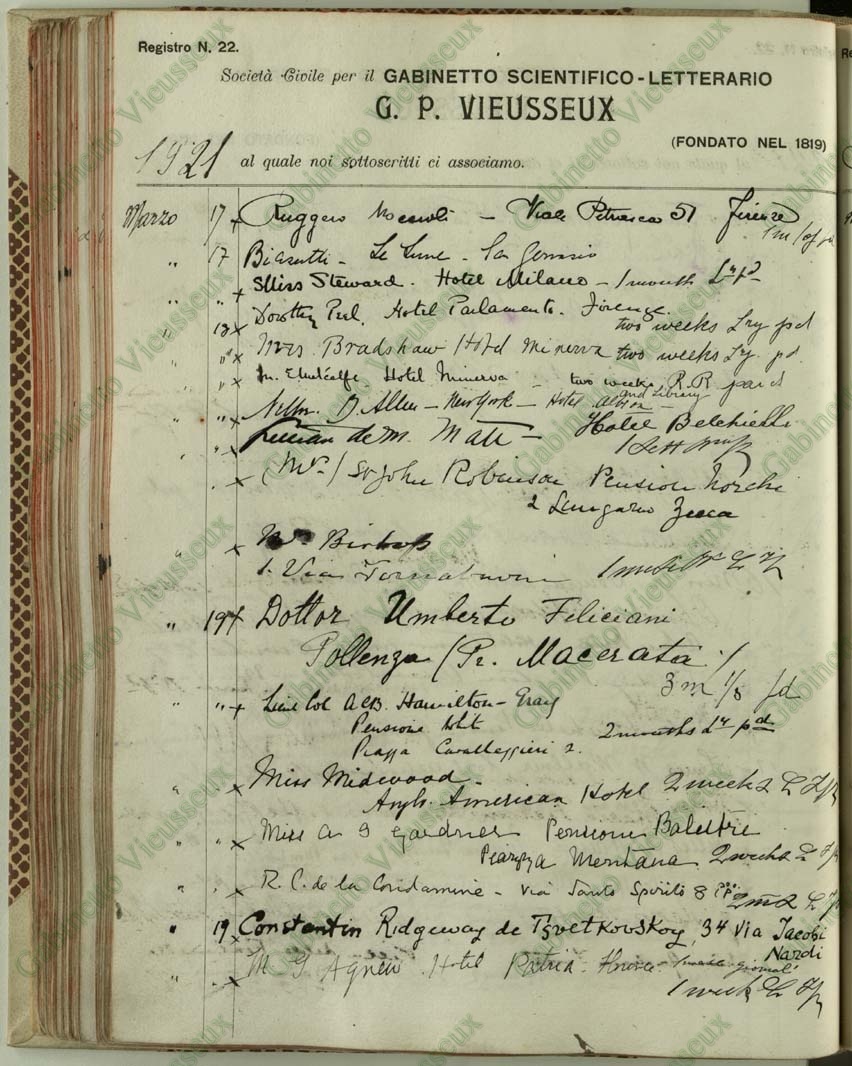 Registro N. 22.
Società Civile per il GABINETTO SCIENTIFICO-LETTERARIO
G. P. VIEUSSEUX
(FONDATO NEL 1819)
1921 al quale noi sottoscritti ci associamo.
Marzo 17 x Ruggero - Viale Petrarca 51 Firenze
1m pd
" 17 Biasutti - Le Lune - San Gervasio
" " x Miss Steward. Hotel Milano - 1 month Ly pd
" 18 x Dorothy Peel. Hotel Parlamento. Firenze.
two weeks Lry pd
" " x Mrs. Bradshaw Hotel Minerva two weeks Ly. pd.
" " x Metcalfe. Hotel Minerva - two weeks R.R. paid
and Library
" " x D. Allen - New York - Hotel Albion -
" x de M. Matt - Hotel Belchielli
1
" . x (Mrs) St John Robinson Pension Norchi
2 Lungarno Zecca
" x Bishop
1. Via Tornabuoni
" 19 x Dottor Umberto Feliciani
Pollenza (Pr. Macerata)
3 m pd
" " x Lieut Col A.C.B. Hamilton-Gray
Pensione
Piazza Cavalleggieri 2. 2 months Ly pd
" . x Miss Midwood.
Anglo-American Hotel 2 weeks
" " x Miss A G Gardner Pensione Balestri
Piazza Mentana 2 weeks
" . x R. C. de la Condamine - Via Santo Spirito 8
" 19 x Constantin Ridgeway de Tsvetkovskoy, 34 Via Jacobi
Nardi
" . x M G Agnew Hotel Patria - Florence -
1 week
Gabinetto Vieusseux